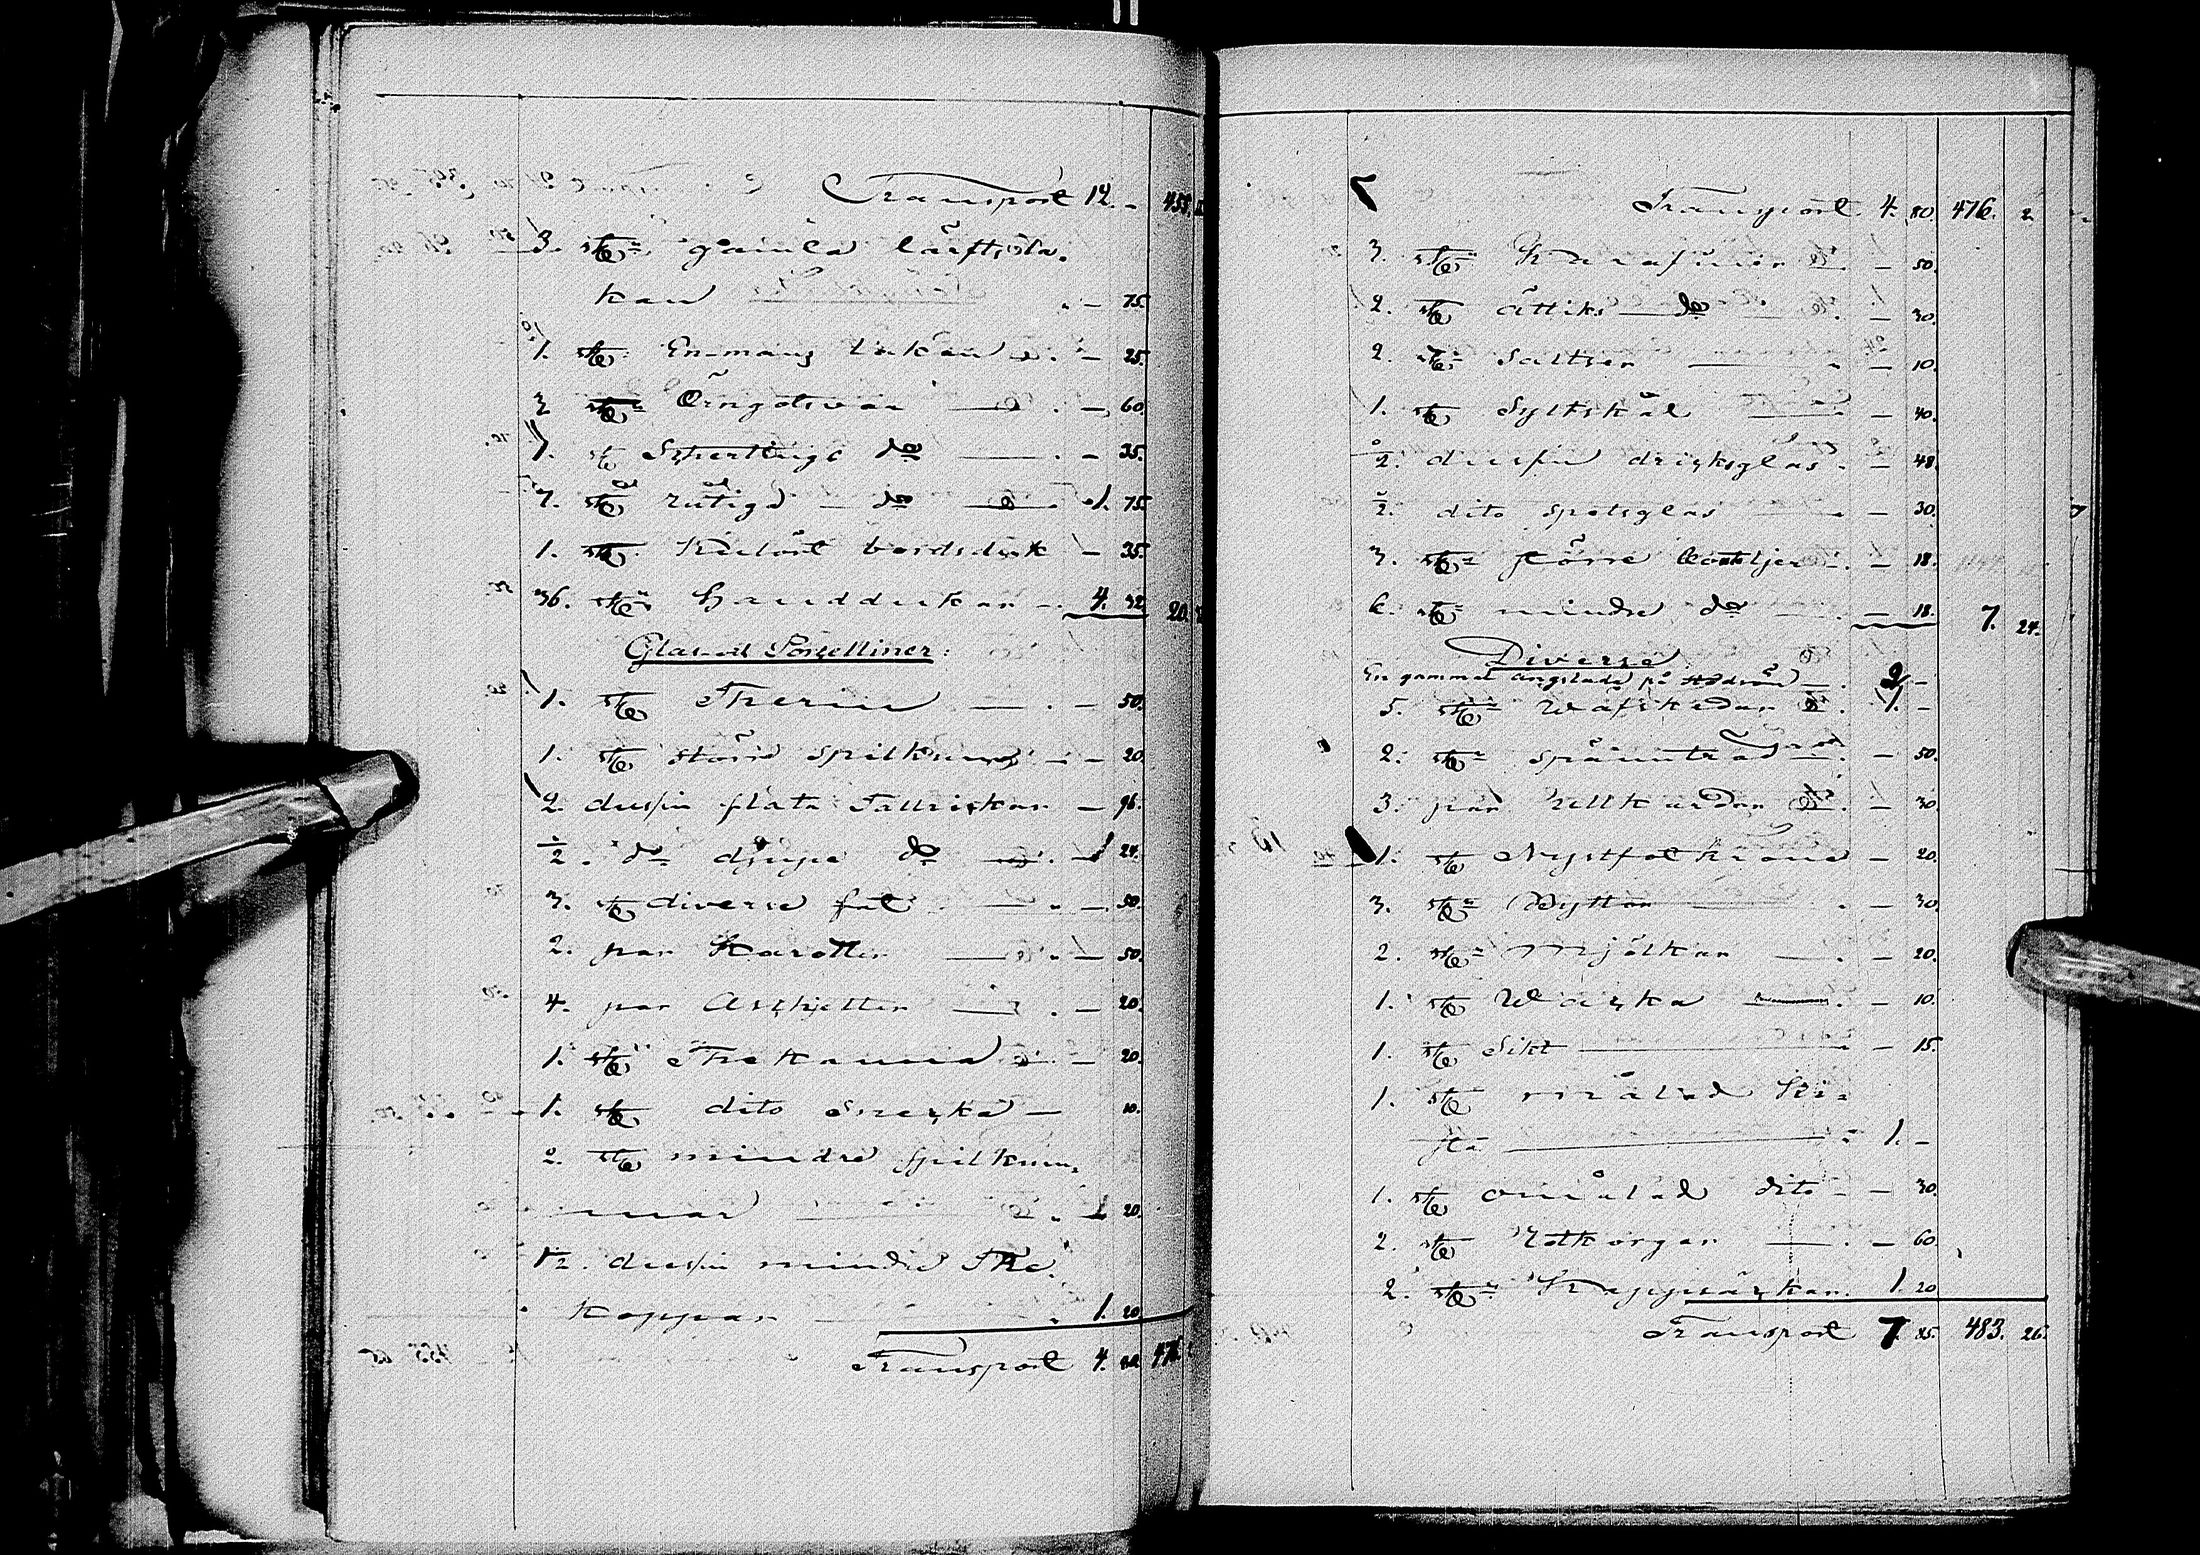 Transport 12. - 455.
3. st: gamla lärfts la.
kan - 75.
1. st: Enmans lakan - 25.
3 st: Örngotsvar - 60.
1. st Schertings do - 35.
7. st rutiga do 1. 75.
1. st. Kulört bordsduk - 35.
36. st: Handdukar 4. 32 20.
Glas- och Porselliner:
1. st Therin - 50.
1. st större spilkum - 20.
2 dussin flata Tallrickar - 96.
1/2. do djupa do - 24.
3. st diverse fat - 50.
2. par Karotter - 50.
4. par Aschietter - 20.
1. st Thekanna - 20.
1. st dito Snecka - 10.
2. st mindre spilkum,
mar - 20.
1/2. dussin mindre The.
koppar 1. 20.
Transport 4. 80. 476.
Transport 4. 80. 476. 2.
3. st Karafiner - 50.
2. st ättiks do - 30.
2. st: Saltser - 10.
1. st Syltskål - 40.
2. dussin dricksglas - 48.
1/2. dito spetsglas - 30.
3. st: större Bouteljer - 18.
6. st: mindre do - 18. 7. 24.
Diverse
En gammal ängslada på 2 -
5. st: Wäfskedar 1. -
2. st: spännträd - 50.
3. par Ullkardor - 30.
1. st Nystfotkrona - 20.
3. st: Byttor - 30.
2. st: Mjölkar - 20.
1. st Wacka - 10.
1. st Sikt - 15.
1. st målad Ki=
sta 1. -
1. st omålad dito - 30.
2. st Rotkorgar - 60.
2. st: Kappsäckar 1. 20
Transport 7. 85. 483. 26.